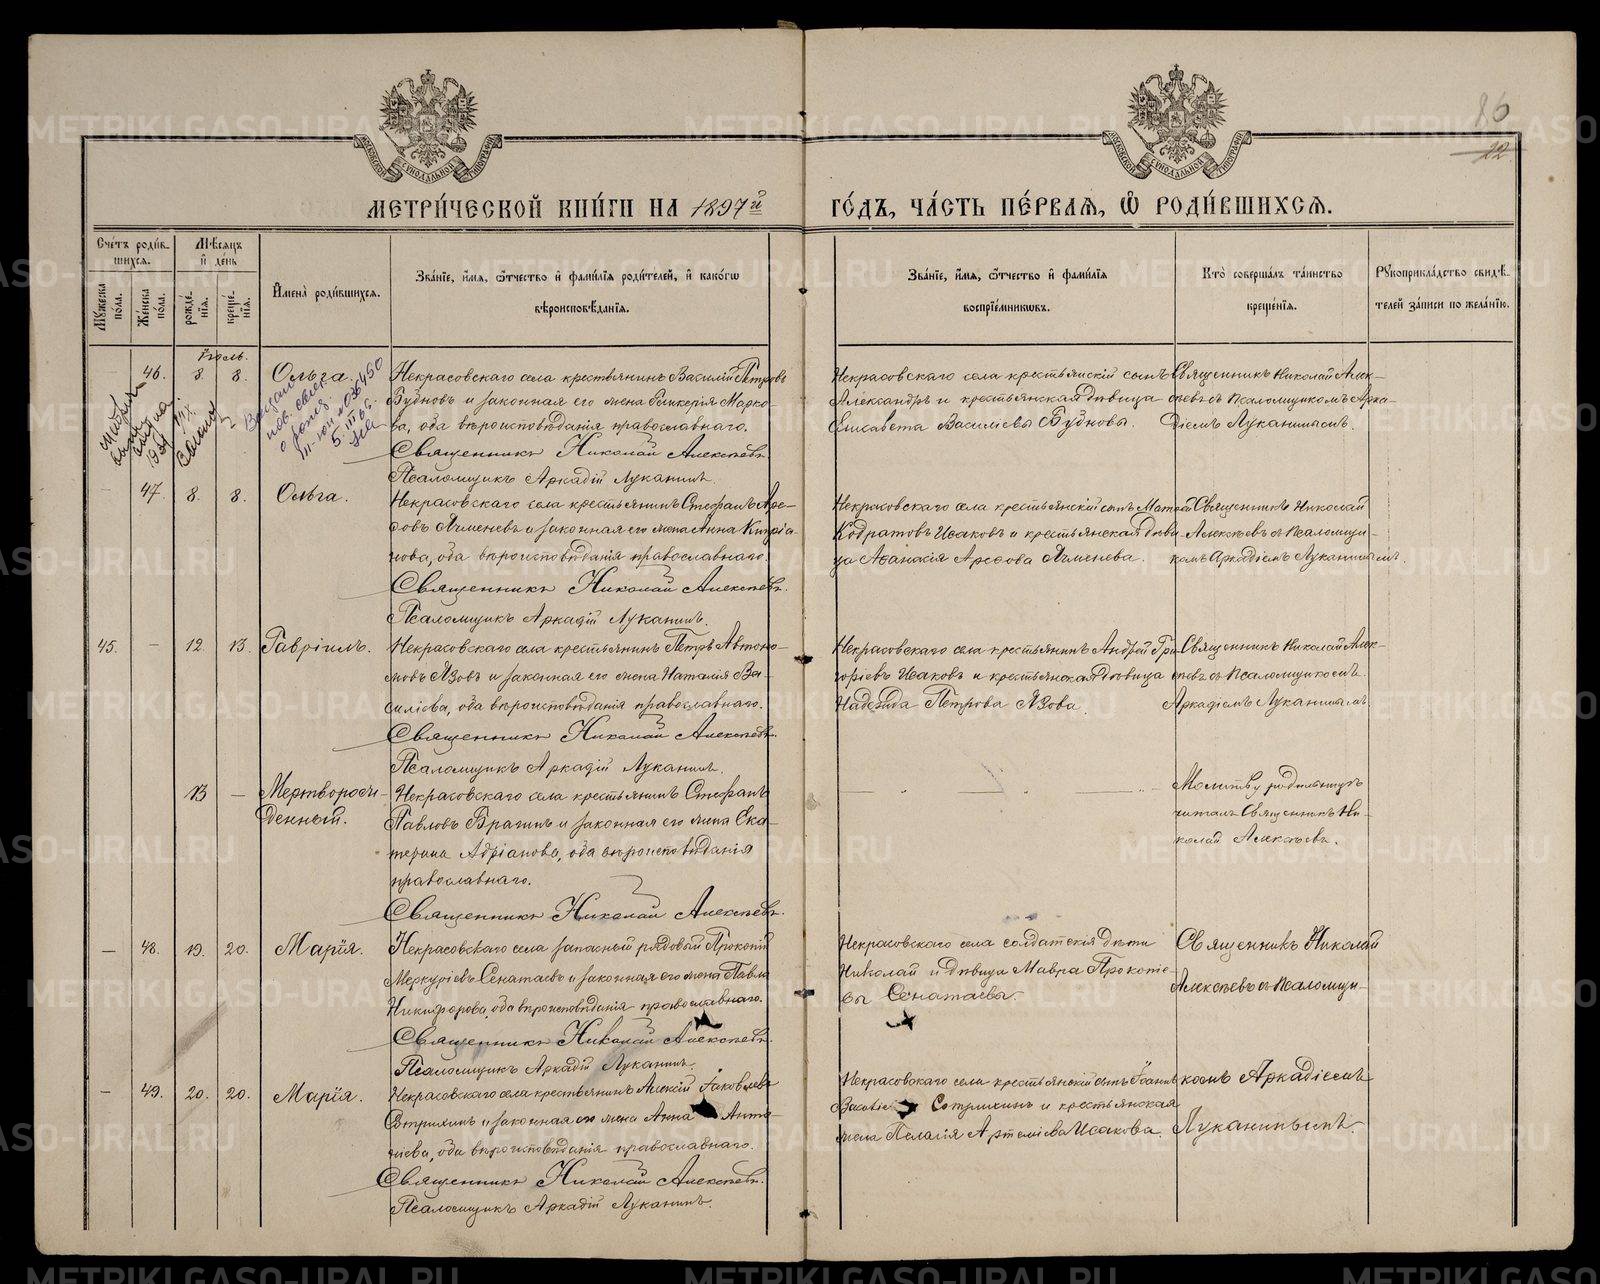 86
22
МОСКОВСКОЙ СУНОДАЛЬНОЙ ТИПОГРАФІИ
МОСКОВСКОЙ СУНОДАЛЬНОЙ ТИПОГРАФІИ
МЕТРИ́ЧЕСКОЙ КНИ́ГИ НА 1897й
ГО́ДЪ, ЧА́СТЬ ПЕ́РВАѦ, Ѽ РОДИ́ВШИХСѦ.
Сче́тъ роди́в-
шихсѧ.
Мꙋжеска по́ла.
Же́нска по́ла.
Мѣ́сѧцъ и҆ де́нь
рожде́-нїѧ.
креще́-нїѧ.
И҆мена̀ роди́вшихсѧ.
Зва́нїе, и҆́мѧ, ѻ҆́тчество и҆ фами́лїѧ роди́телей, и҆ како́гѡ
вѣроисповѣ́данїѧ.
Зва́нїе, и҆́мѧ, ѻ҆́тчество и҆ фами́лїѧ
воспрїе́мникѡвъ.
Кто̀ соверша́лъ та́инство
креще́нїѧ.
Рꙋкоприкла́дство свидѣ́-
телей за́писи по жела́нїю.
Іюль.
46. 8. 8. Ольга.
Некрасовскаго села крестьянинъ Василій Петровъ
Бубновъ и законная его жена Гликерія Марко-
ва, оба вѣроисповѣданія православнаго.
Священникъ Николай Алексѣевъ.
Псаломщикъ Аркадій Луканинъ.
Некрасовскаго села крестьянскій сынъ
Александръ и крестьянская дѣвица
Елисавета Василіевы Бубновы.
Священникъ Николай Алек-
сѣевъ съ Псаломщикомъ Арка-
діемъ Луканинымъ.
Выдано
пов. свид.
о рожд.
III-ЮИ №036450
5.III
47. 8. 8. Ольга.
Некрасовскаго села крестьянинъ Стефанъ Аре-
ѳовъ Ячменевъ и законная его жена Анна Кипріа-
нова, оба вѣроисповѣданія православнаго.
Священникъ Николай Алексѣевъ.
Псаломщикъ Аркадій Луканинъ.
Некрасовскаго села крестьянскій сынъ
Кодратовъ Исаковъ и крестьянская дѣви-
ца Аѳанасія Ареѳова Ячменева.
Священникъ Николай
Алексѣевъ съ Псаломщи-
комъ Аркадіемъ Луканинымъ.
45. — 12. 13. Гавріилъ.
Некрасовскаго села крестьянинъ Петръ Автоно-
мовъ Язовъ и законная его жена Наталія Ва-
силіева, оба вѣроисповѣданія православнаго.
Священникъ Николай Алексѣевъ.
Псаломщикъ Аркадій Луканинъ.
Некрасовскаго села крестьянинъ Андрей Гри-
горіевъ Исаковъ и крестьянская дѣвица
Надежда Петрова Язова.
Священникъ Николай Алек-
сѣевъ съ Псаломщикомъ
Аркадіемъ Луканинымъ.
13 — Мертворож-
денный.
Некрасовскаго села крестьянинъ Стефанъ
Павловъ Брагинъ и законная его жена Ека-
терина Адріанова, оба вѣроисповѣданія
православнаго.
Священникъ Николай Алексѣевъ.
Молитву родильницѣ
читалъ Священникъ Ни-
колай Алексѣевъ.
— 48. 19. 20. Марія.
Некрасовскаго села запасный рядовый Прокопій
Меркуріевъ Сенатаевъ и законная его жена Павла
Никифорова, оба вѣроисповѣданія православнаго.
Священникъ Николай Алексѣевъ.
Псаломщикъ Аркадій Луканинъ.
Некрасовскаго села солдатскія дѣти
Николай и дѣвица Мавра Прокопіе-
вы Сенатаевы.
Священникъ Николай
Алексѣевъ съ Псаломщи-
— 49. 20. 20. Марія.
Некрасовскаго села крестьянинъ Алексій Іаковлевъ
и законная его жена Анна Анта-
ніева, оба вѣроисповѣданія православнаго.
Священникъ Николай Алексѣевъ.
Псаломщикъ Аркадій Луканинъ.
Некрасовскаго села крестьянскій сынъ Іоаннъ
и крестьянская
жена Пелагія Артеміева Исакова.
комъ Аркадіемъ
Луканинымъ.
METRIKI.GASO-URAL.RU